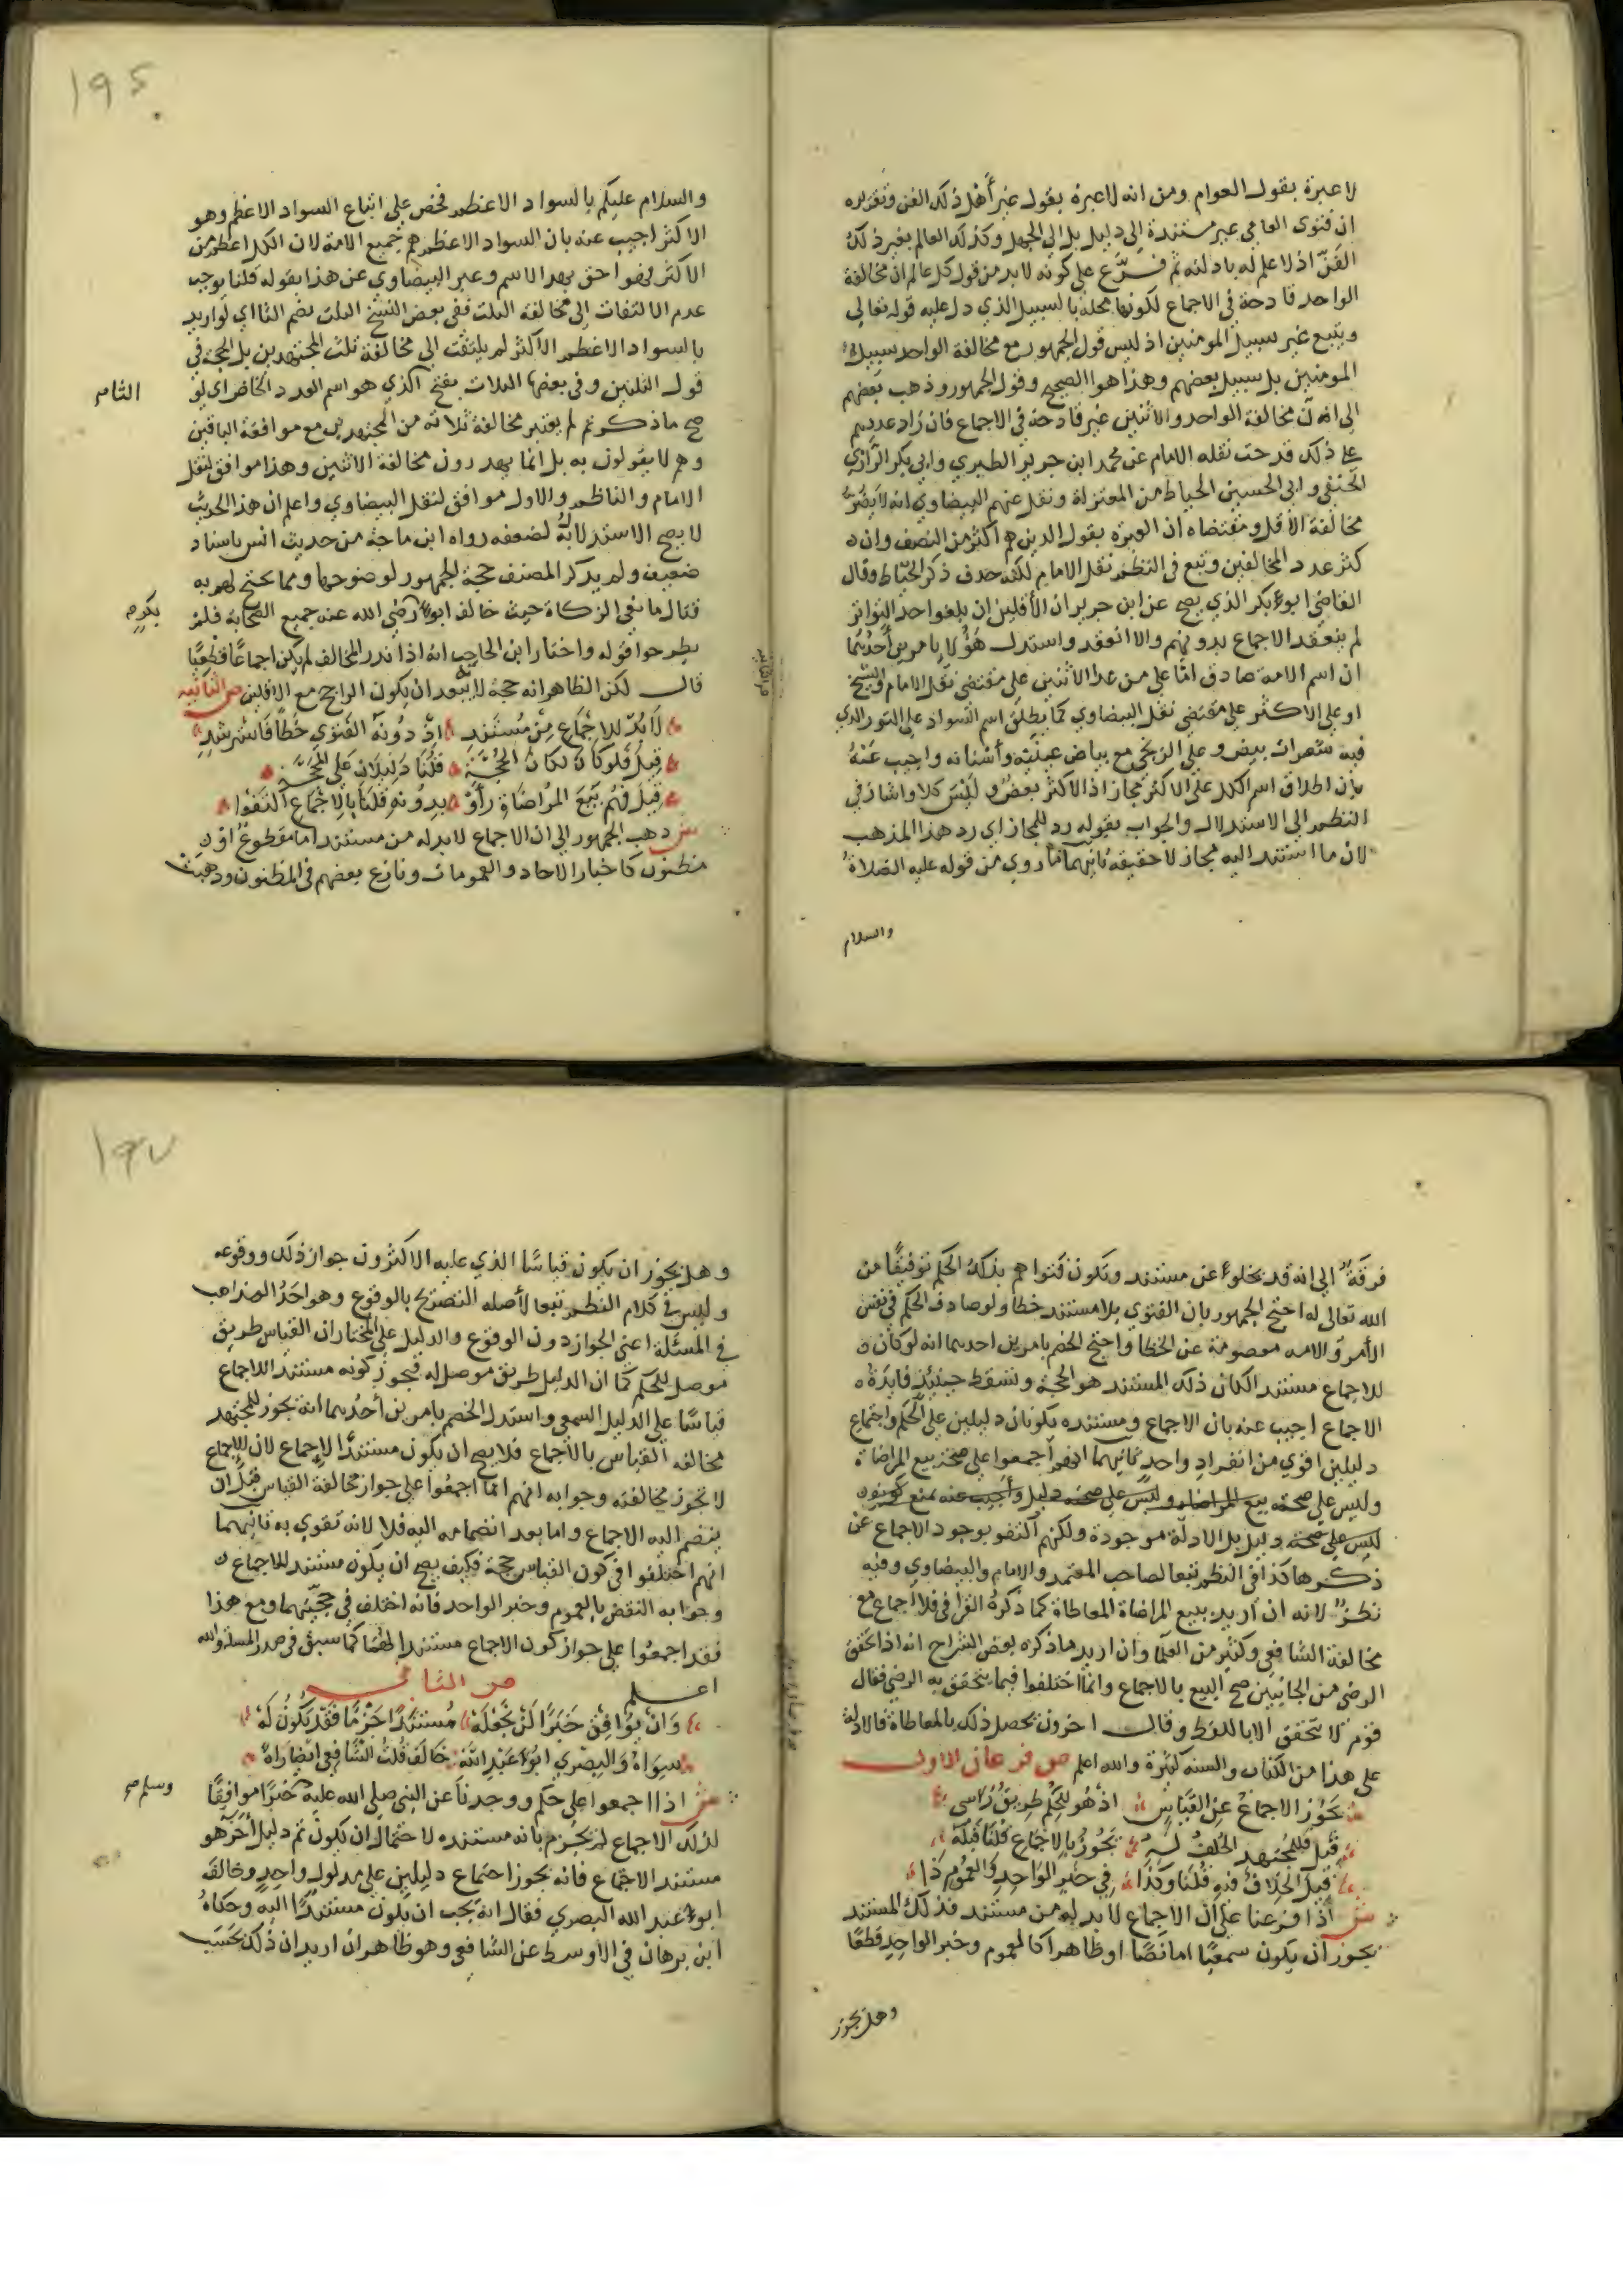 لا عبرة بقول العوام ومن انه لا عبرة بقول غير أهل ذلك الفن وتقريره
ان فتوى العامي غير مستندة الى دليل بل الى الجهل وكذلك العالم بغير ذلك
الفن اذ لا علم له بادلته ثم فرّع على كونه لا بد من قول كل عالم ان مخالفة
الواحد قادحة في الاجماع لكونها مخلة بالسبيل الذي دل عليه قوله تعالى
ويتبع غير سبيل المومنين اذ ليس قول الجمهور مع مخالفة الواحد سبيل
المومنين بل سبيل بعضهم وهذا هو الصحيح وقول الجمهور وذهب بعضهم
الى ان مخالفة الواحد والاثنين غير قادحة في الاجماع فان زاد عددهم
على ذلك قدحت نقله الامام عن محمد ابن جرير الطبري وابي بكر الرازي
الحنفي وابي الحسين الخياط من المعتزلة ونقل عنهم البيضاوي انه لا يضر
مخالفة الاقل ومقتضاه ان العبرة بقول الذين هم اكثر من النصف وان
كثر عدد المخالفين وتبع في النظم نقل الامام لكنه حذف ذكر الخياط وقال
القاضي ابو بكر الذي يصح عن ابن جرير ان الأقلين ان بلغوا حد التواتر
لم ينعقد الاجماع بدونهم والا انعقد واستدل هؤلا بامرين أحدهما
ان اسم الامة صادق امّا على من عدا الاثنين على مقتضى نقل الامام والشيخ
او على الاكثر على مقتضى نقل البيضاوي كما يطلق اسم السواد على الثور الذي
فيه شعرات بيض وعلى الزنجي مع بياض عينيه وأسنانه واجيب عنه
بان اطلاق اسم الكل على الاكثر مجاز اذ الاكثر بعض وليس كلا واشار في
النظم الى الاستدلال والجواب بقوله رد للمجاز اي رد هذا المذهب
لان ما استند اليه مجاز لا حقيقة ثانيهما ما روي من قوله عليه الصلاة
والسلام
195
والسلام عليكم بالسواد الاعظم فحض على اتباع السواد الاعظم وهو
الاكثر اجيب عنه بان السواد الاعظم هم جميع الامة لان الكل اعظم من
الاكثر فهو احق بهذا الاسم وعبر البيضاوي عن هذا بقوله قلنا يوجب
عدم الالتفات الى مخالفة الثلث ففي بعض النسخ الثلث بضم الثا اي لو اريد
بالسواد الاعظم الاكثر لم يلتفت الى مخالفة ثلث المجتهدين بل الحجة في
قول الثلثين وفي بعضها الثلاث بفتح الذي هو اسم العدد الخاص اي لو
الثاء م
صح ما ذكرتم لم يعتبر مخالفة ثلاثة من المجتهدين مع موافقة الباقين
وهم لا يقولون به بل انما يهدرون مخالفة الاثنين وهذا موافق لنقل
الامام والناظم والاول موافق لنقل البيضاوي واعلم ان هذا الحديث
لا يصح الاستدلال به لضعفه رواه ابن ماجة من حديث انس باسناد
ضعيف ولم يذكر المصنف حجة الجمهور لوضوحها ومما يحتج لهم به
قتال مانعي الزكاة حيث خالف ابو رضي الله عنه جميع الصحابة فلم
بكر
يطرحوا قوله واختار ابن الحاجب انه اذا ندر المخالف لم يكن اجماعا قطعيا
قال لكن الظاهر انه حجة لبعد ان يكون الراجح مع الاقلين ص الثانية
لا بد للاجماع من مستند اذ دونه الفتوى خطأ فاسترشد
قيل فلو كان لكان الحجة قلنا دليلان على المحجة
قيل فهم بيع المراضاة رأوْا بدونه قلنا بالاجماع اكتفوا
ش ذهب الجمهور الى ان الاجماع لا بد له من مستند اما مقطوع او
مظنون كاخبار الاحاد والعمومات ونازع بعضهم في المظنون وذهبت
فرقة الى انه قد يخلو عن مستند وتكون فتواهم بذلك الحكم توفيقا من
الله تعالى له احتج الجمهور بان الفتوى بلا مستند خطا ولو صادف الحكم في نفس
الأمر والامه معصومة عن الخطا واحتج الخصم بامرين احدهما انه لو كان
للاجماع مستند الكان ذلك المستند هو الحجة وتسقط حينئذ فايدة
الاجماع اجيب عنه بان الاجماع ومستنده يكونان دليلين على الحكم واجتماع
دليلين اقوي من انفراد واحد ثانيهما انهم أجمعوا على صحة بيع المراضاة
وليس على صحته بيع المراضاة وليس على صحته دليل وأجيب عنه بمنع كونه
ليس على صحة دليل بل الادلة موجودة ولكنهم اكتفو بوجود الاجماع عن
ذكرها كذا في النظم تبعا لصاحب المعتمد والامام والبيضاوي وفيه
نظر لانه ان اريد ببيع المراضاة المعاطاة كما ذكره القرافي فلا اجماع مع
مخالفة الشافعي وكثير من العلما وان اريد ما ذكره بعض الشراح انه اذا تحقق
الرضى من الجانبين صح البيع بالاجماع وانما اختلفوا فيما يتحقق به الرضي فقال
قوم لا يتحقق الا باللفظ وقال اخرون يحصل ذلك بالمعاطاة فالادلة
على هذا من الكتاب والسنه كثيرة والله اعلم ص فرعان الاول
يجوز الاجماع عن القياس اذ هو للحكم طريق راسي
قيل فللمجتهد الخلف له يجوز بالاجماع قلنا قبله
قيل الخلاف فيه قلنا وكذا في خبر الواحد والعموم ذا
ش اذا فرعنا على ان الاجماع لا بد له من مستند فذلك المستند
يجوز ان يكون سمعيا اما نصا او ظاهرا كالعموم وخبر الواحد قطعا
وهل يجوز
197
وهل يجوز ان يكون قياسا الذي عليه الاكثرون جواز ذلك ووقوعه
وليس في كلام النظم تبعا لأصله التصريح بالوقوع وهو احد المذاهب
في المسئلة اعني الجواز دون الوقوع والدليل على المختار ان القياس طريق
موصل للحكم كما ان الدليل طريق موصل له فيجوز كونه مستند اللاجماع
قياسا على الدليل السمعي واستدل الخصم بامرين أحدهما انه يجوز للمجتهد
مخالفه القياس بالاجماع فلا يصح ان يكون مستندا لاجماع لان الاجماع
لا تجوز مخالفته وجوابه انهم انما اجمعوا على جواز مخالفة القياس قبل ان
ينضم اليه الاجماع واما بعد انضمامه اليه فلا لانه تقوي به ثانيهما
انهم اختلفوا في كون القياس حجة فكيف يصح ان يكون مستند للاجماع
وجوابه النقض بالعموم وخبر الواحد فانه اختلف في حجيتهما ومع هذا
فقد اجمعوا على جواز كون الاجماع مستندا لهما كما سبق في صدر المسئلة والله
اعلم ص الثاني
وان يوافق خبرا لن نجعله مستندا حزما فقد يكون له
سواه والبصري ابو عبد الله خالف قلت الشافعي ايضا راه
ش اذا اجمعوا على حكم ووجدنا عن النبي صلى الله عليه خبرا موافقا
وسلم صح
لذلك الاجماع لم نجزم بانه مستنده لاحتمال ان يكون ثم دليل أخر هو
مستند الاجماع فانه يجوز اجتماع دليلين على مدلول واحد وخالف
ابو عبد الله البصري فقال انه يجب ان يكون مستندا اليه وحكاه
ابن برهان في الاوسط عن الشافعي وهو ظاهر ان اريد ان ذلك بحسب